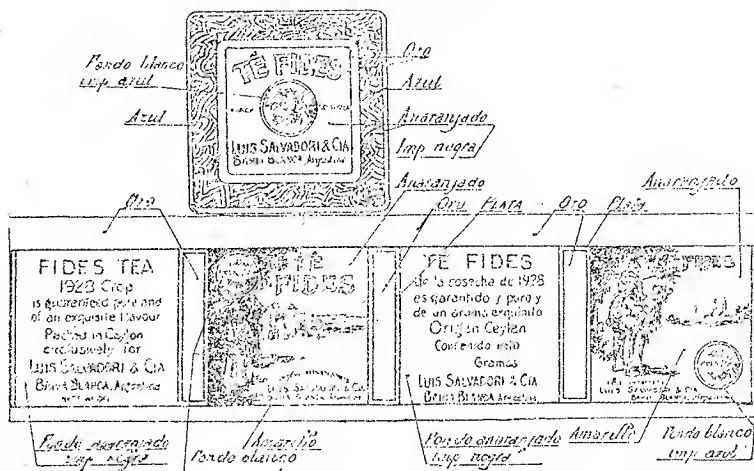 Fondo blanco
imp azul
Azul
Oro
Azul
Anaranjado
Imp negra
TÉ FIDES
LUIS SALVADORI & CIA
BAHIA BLANCA, Argentina
Oro
Anaranjado
Oro
PLATA
Oro
Plata
Anaranjado
FIDES TEA
1928 Crop
is guaranteed pure and
of an exquisite flavour
Packed in Ceylon
exclusively for
LUIS SALVADORI & CIA
BAHIA BLANCA, Argentina
TÉ
FIDES
LUIS SALVADORI & CIA
BAHIA BLANCA, Argentina
TÉ FIDES
de la cosecha de 1928
es garantido y puro y
de un aroma exquisito
Origen Ceylan
Contenido neto
Gramos
LUIS SALVADORI & CIA
BAHIA BLANCA, Argentina
FIDES
LUIS SALVADORI & CIA
BAHIA BLANCA, Argentina
Fondo anaranjado
imp negra
Fondo blanco
Amarillo
Fondo anaranjado
imp negra
Amarillo
Fondo blanco
imp azul